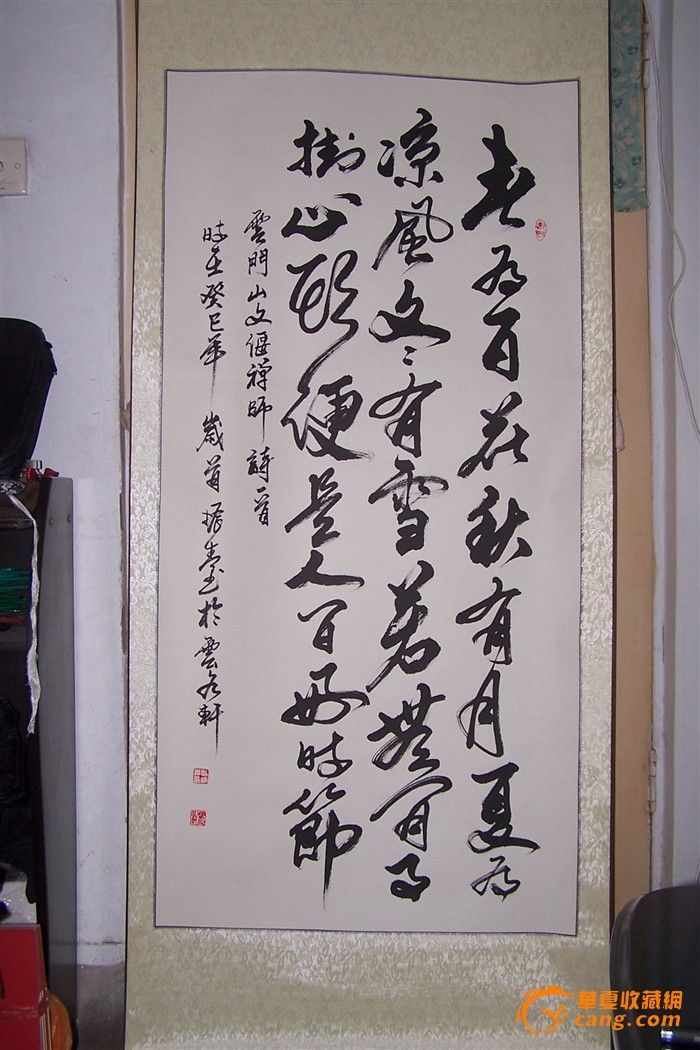 春有百花秋有月夏有
凉風冬有雪若無間事
掛心頭便是人間好時節
雲門山文偃禪師詩一首
時在癸巳年 歲首 於雲 軒
華夏收藏網
cang.com